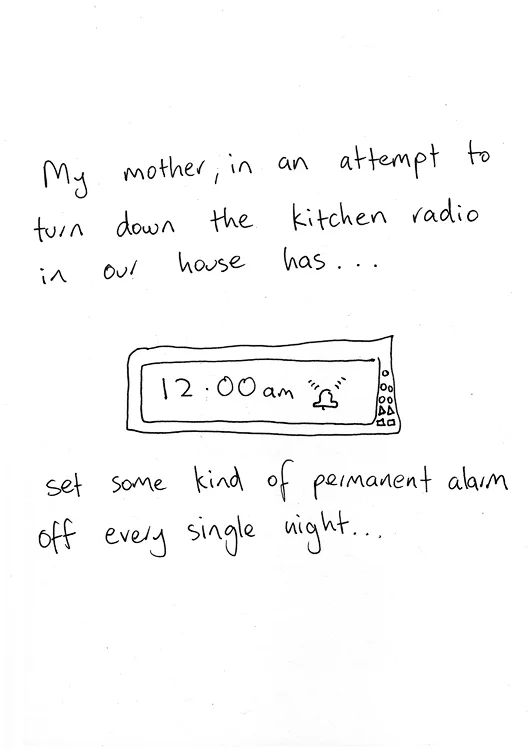 My mother, in an attempt to
turn down the kitchen radio
in our house has...
12.00am
set some kind of permanent alarm
off every single night...